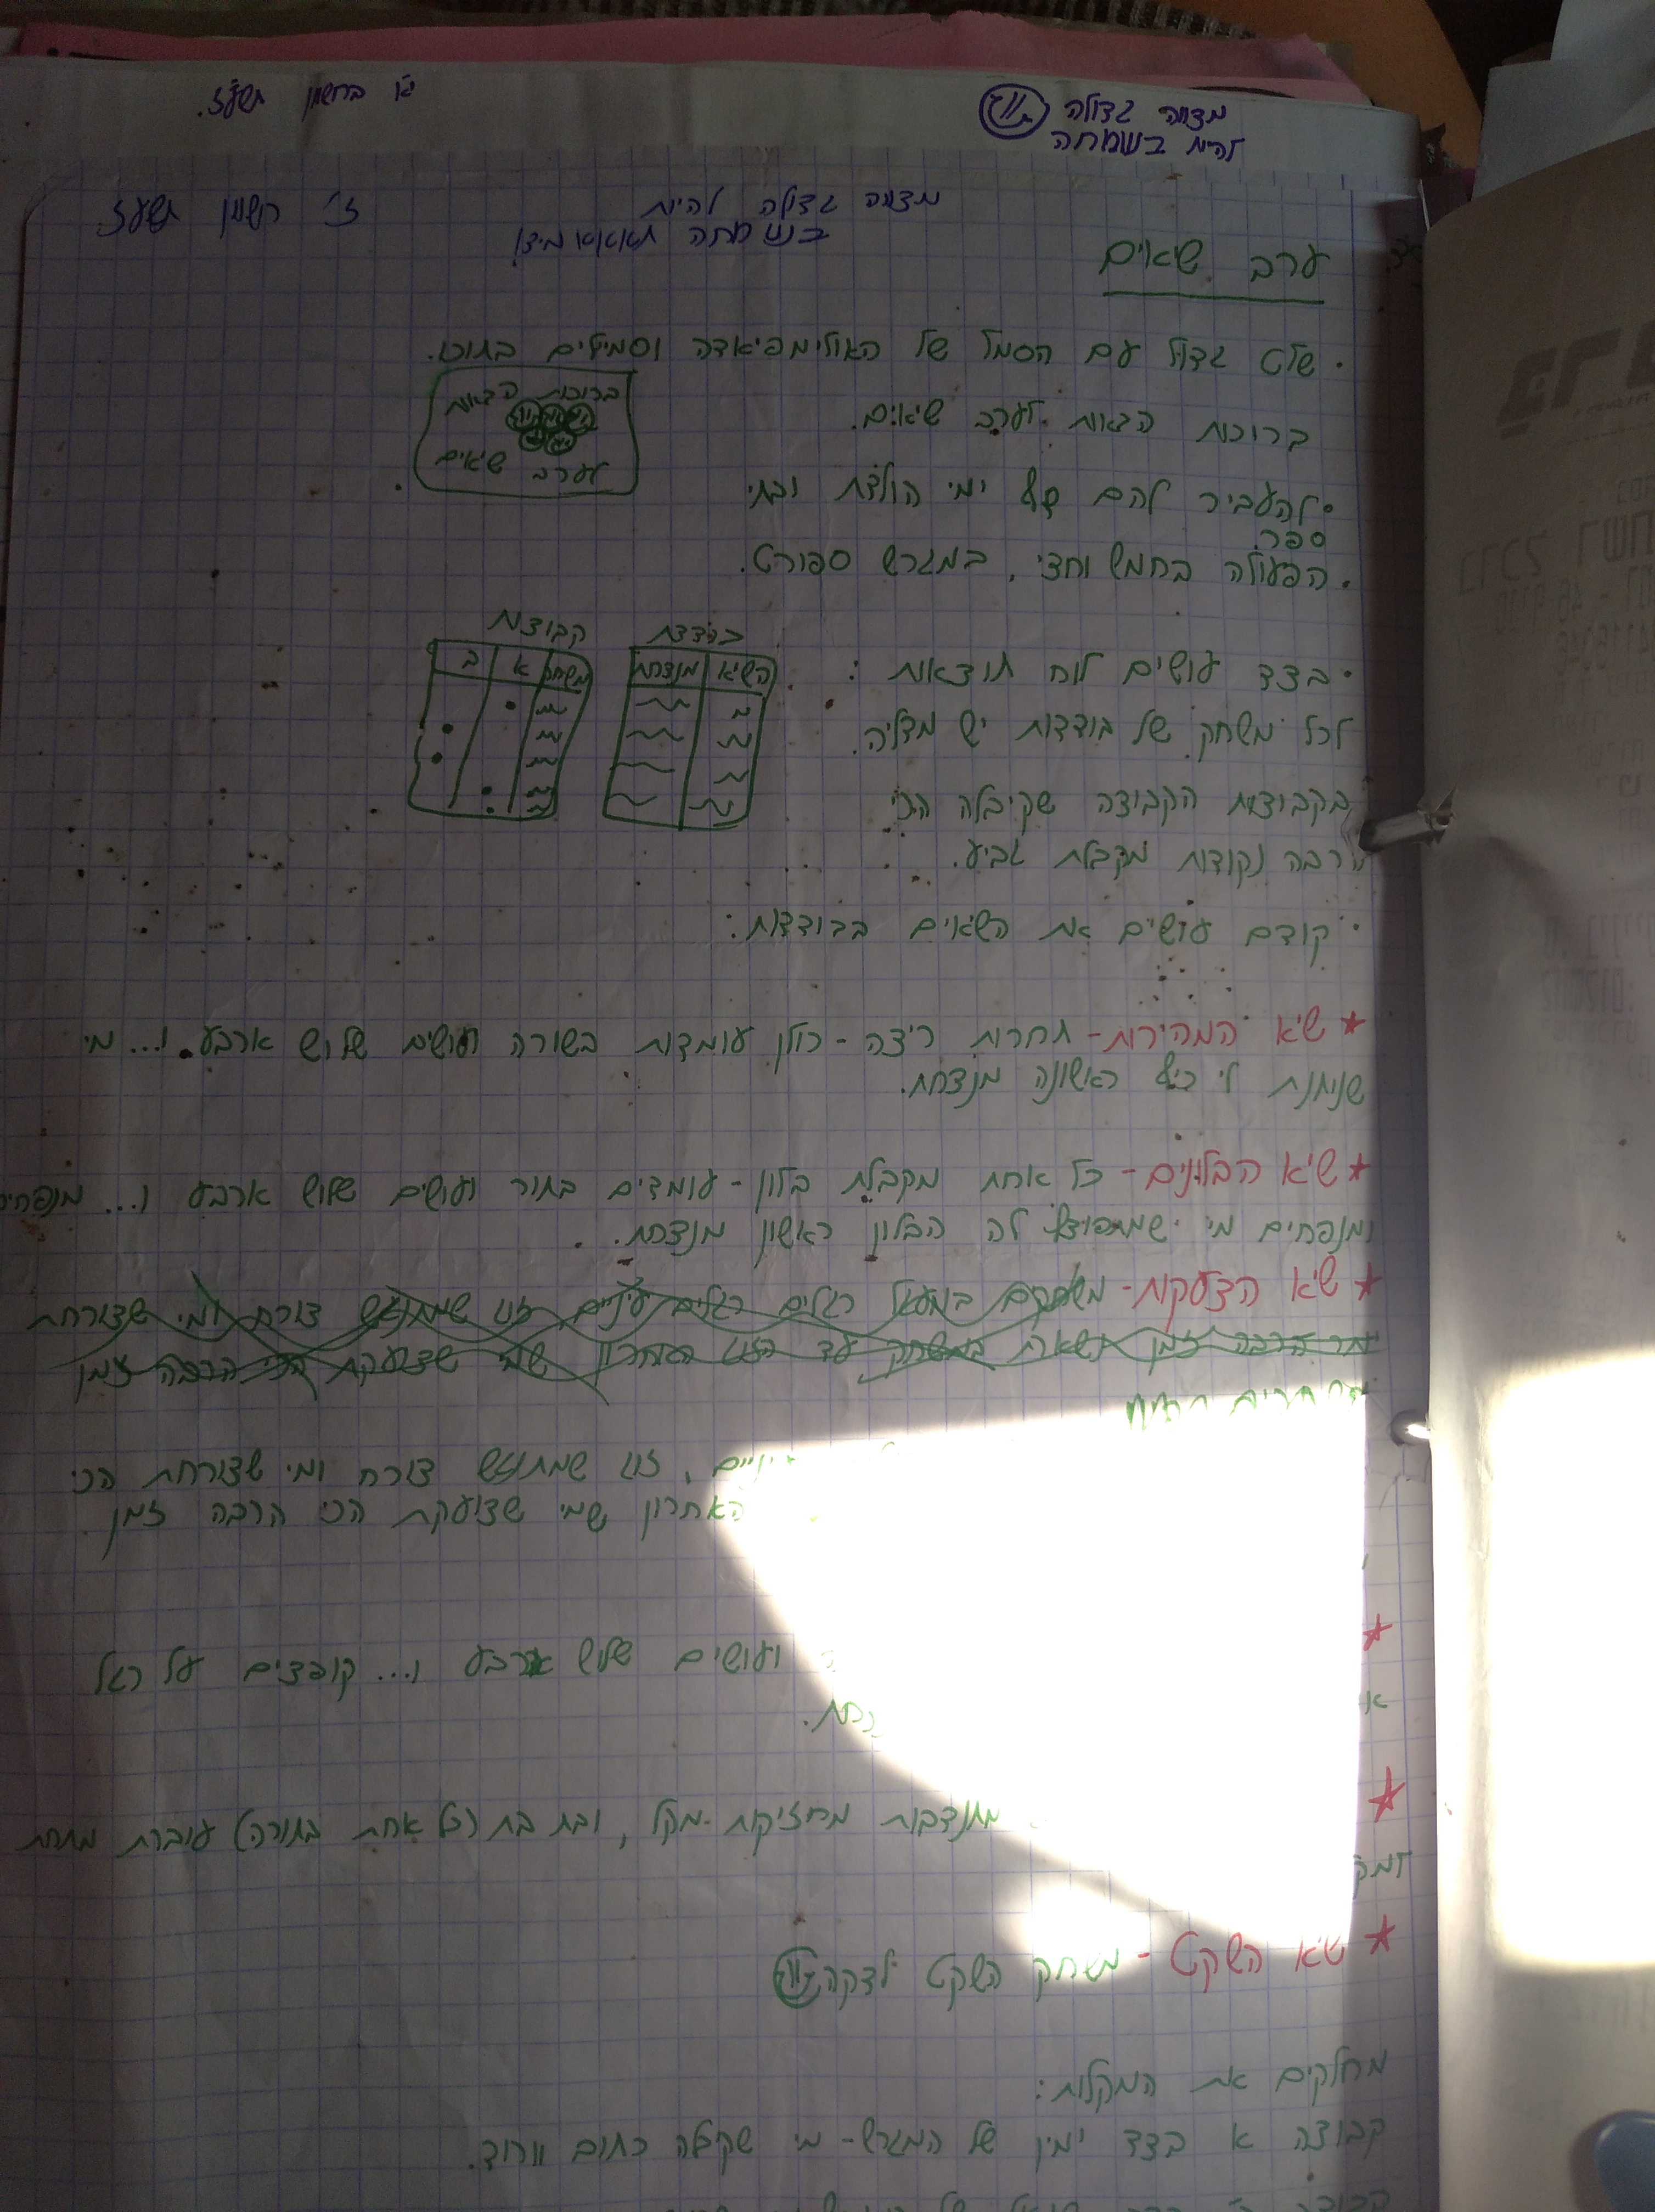 י"א בחשוון תשע"ז.
מצווה גדולה
להיות בשמחה
ז' חשוון תשע"ז
מצווה גדולה להיות
בשמחה
ערב שיאים
· שלט גדול עם הסמל של האולימפיאדה וסמיילים בתוכו.
ברוכות הבאות
לערב שיאים
ברוכות הבאות לערב שיאים.
· להעביר להם דף ימי הולדת ובתי
ספר.
· הפעולה בחמש וחצי, במגרש ספורט.
· בצד עושים לוח תוצאות:
בודדת
השיא מנצחת
קבוצות
משחק א ב
לכל משחק של בודדות יש מדליה.
בקבוצות הקבוצה שקיבלה הכי
הרבה נקודות מקבלת גביע.
· קודם עושים את השיאים בבודדות:
* שיא המהירות - תחרות ריצה - כולן עומדות בשורה ועושים שלוש ארבע ו... מי
שנותנת לי כיף ראשונה מנצחת.
* שיא הבלונים - כל אחת מקבלת בלון - עומדים בתור ועושים שלוש ארבע ו... מנפחים
ומנפחים מי שמתפוצץ לה הבלון ראשון מנצחת.
* שיא הצעקות - משחקים במעגל רגלים רגלים עיניים זוג שמתנגש צורח ומי שצורחת
הרבה זמן נשארת במשחק עד הזוג האחרון שמי שצועקת הכי הרבה זמן
עיניים, זוג שמתנגש צורח ומי שצורחת הכי
האחרון שמי שצועקת הכי הרבה זמן
*
ועושים שלוש ארבע ו... קופצים על רגל
*
מתנדבות מחזיקות מקל, ובת בת (כל אחת בתורה) עוברת מתחת
* שיא השקט - משחק השקט לדקה
מחלקים את המקלות:
קבוצה א בצד ימין של המגרש - מי שקיבלה כתום וורוד.